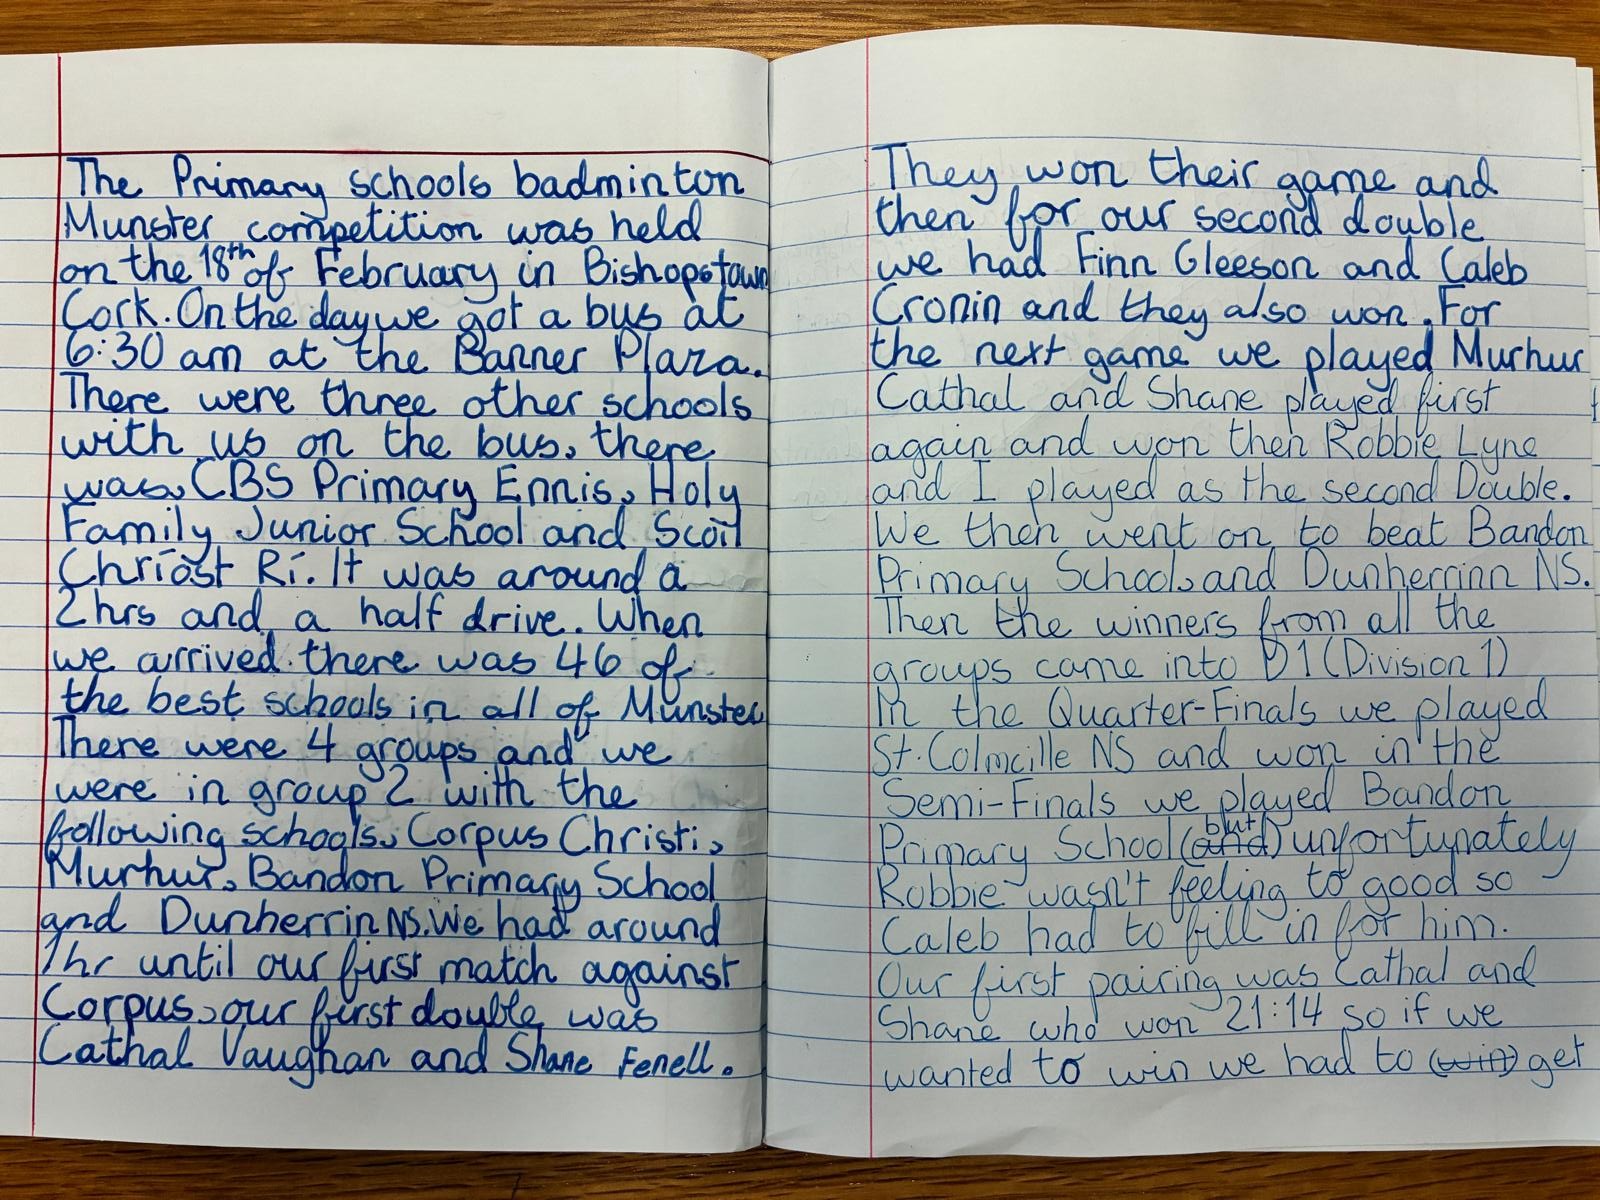 The Primary schools badminton
Munster competition was held
on the 18th of February in Bishopstown
Cork. On the day we got a bus at
6:30 am at the Banner Plaza.
There were three other schools
with us on the bus, there
was, CBS Primary Ennis, Holy
Family Junior School and Scoil
Chríost Rí. It was around a
2hrs and a half drive. When
we arrived there was 46 of
the best schools in all of Munster
There were 4 groups and we
were in group 2 with the
following schools, Corpus Christi,
Murhur, Bandon Primary School
and Dunherrin NS. We had around
1hr until our first match against
Corpus, our first double was
Cathal Vaughan and Shane Fenell.
They won their game and
then for our second double
we had Finn Gleeson and Caleb
Cronin and they also won. For
the next game we played Murhur
Cathal and Shane played first
again and won then Robbie Lyne
and I played as the second Double.
We then went on to beat Bandon
Primary School and Dunherrinn NS.
Then the winners from all the
groups came into D1 (Division 1)
In the Quarter-Finals we played
St. Colmcille NS and won in the
Semi-Finals we played Bandon
Primary School (and) but unfortunately
Robbie wasn't feeling to good so
Caleb had to fill in for him.
Our first pairing was Cathal and
Shane who won 21:14 so if we
wanted to win we had to (win) get